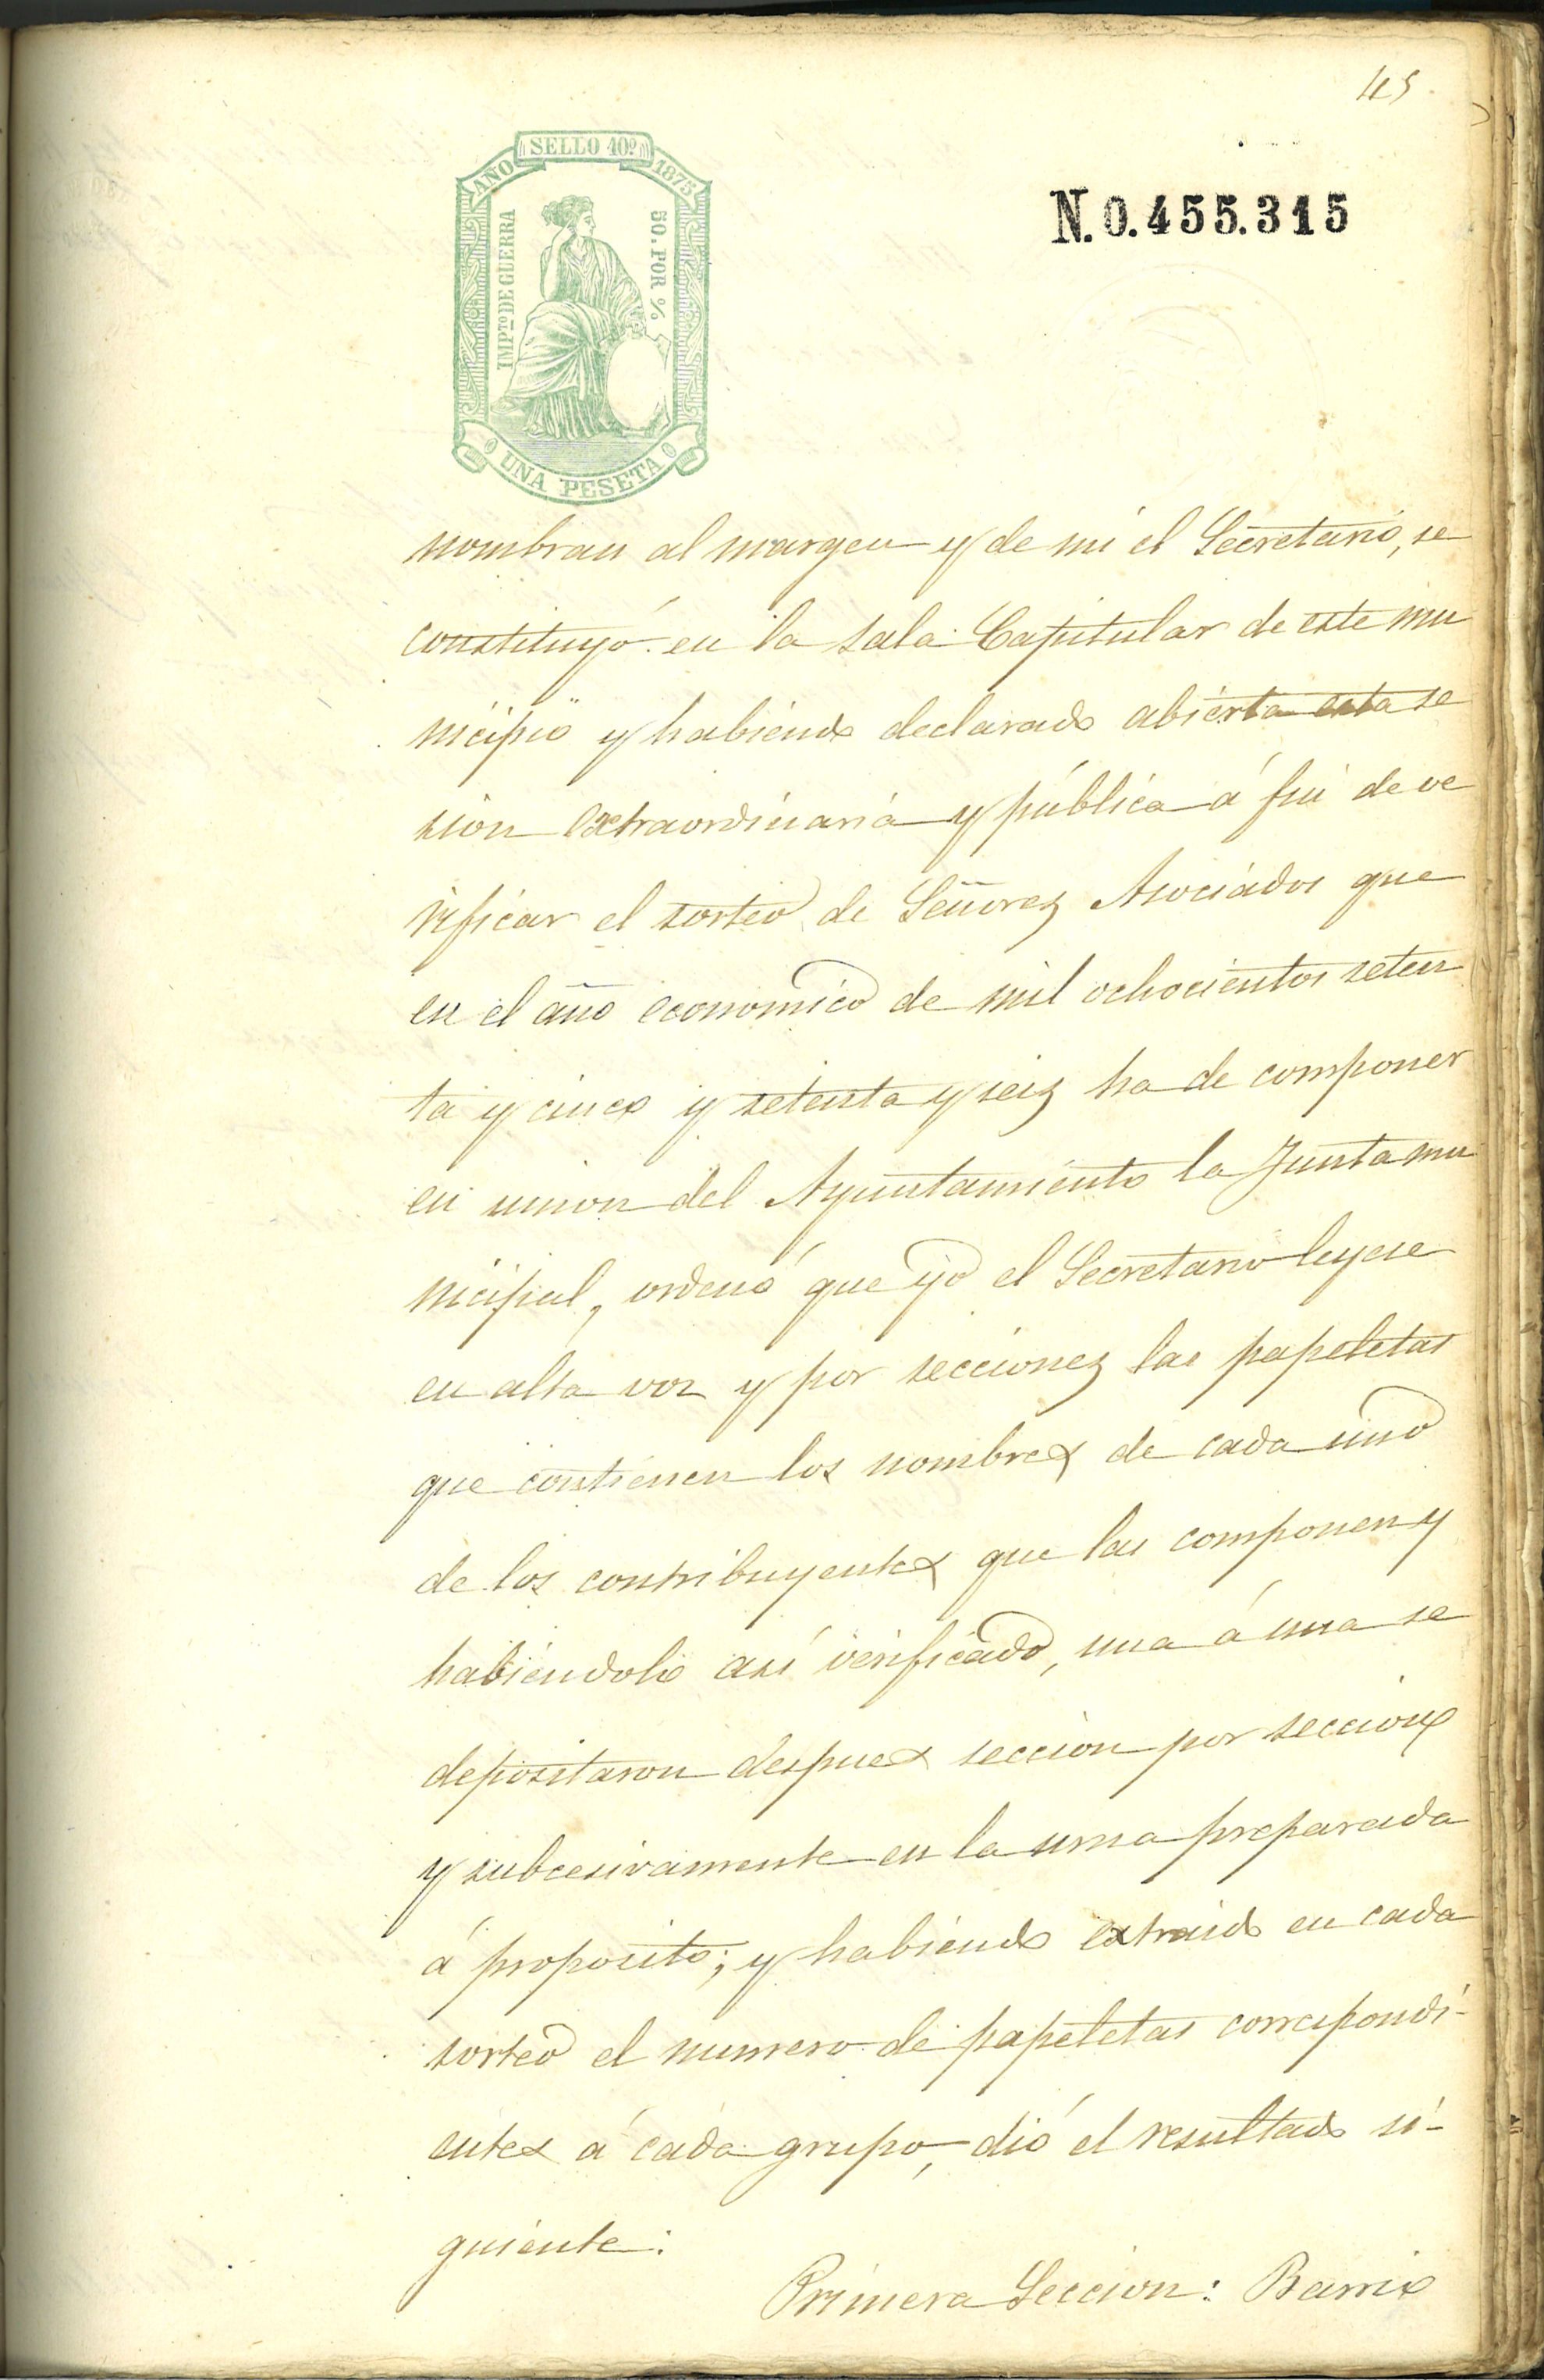 45
SELLO 10º
AÑO 1875
IMPTO DE GUERRA
50. POR %
UNA PESETA
N.0.455.315
nombran al margen y de mi el Secretario, se
constituyó en la sala Capitular de este mu
nicipio y habiendo declarado abierta esta se
sion extraordinaria y pública á fin de ve
rificar el sorteo de Señores Asociados que
en el año economico de mil ochocientos seten
ta y cinco y setenta y seis ha de componer
en union del Ayuntamiento la Junta mu
nicipal, ordenó que yo el Secretario leyese
en alta voz y por secciones las papeletas
que contienen los nombres de cada uno
de los contribuyentes que las componen y
habiendolo así verificado, una á una se
depositaron despues seccion por seccion
y subcesivamente en la urna preparada
á proposito; y habiendo extraido en cada
sorteo el numero de papeletas correspondi-
entes á cada grupo, dió el resultado si-
guiente:
Primera Seccion: Barrio